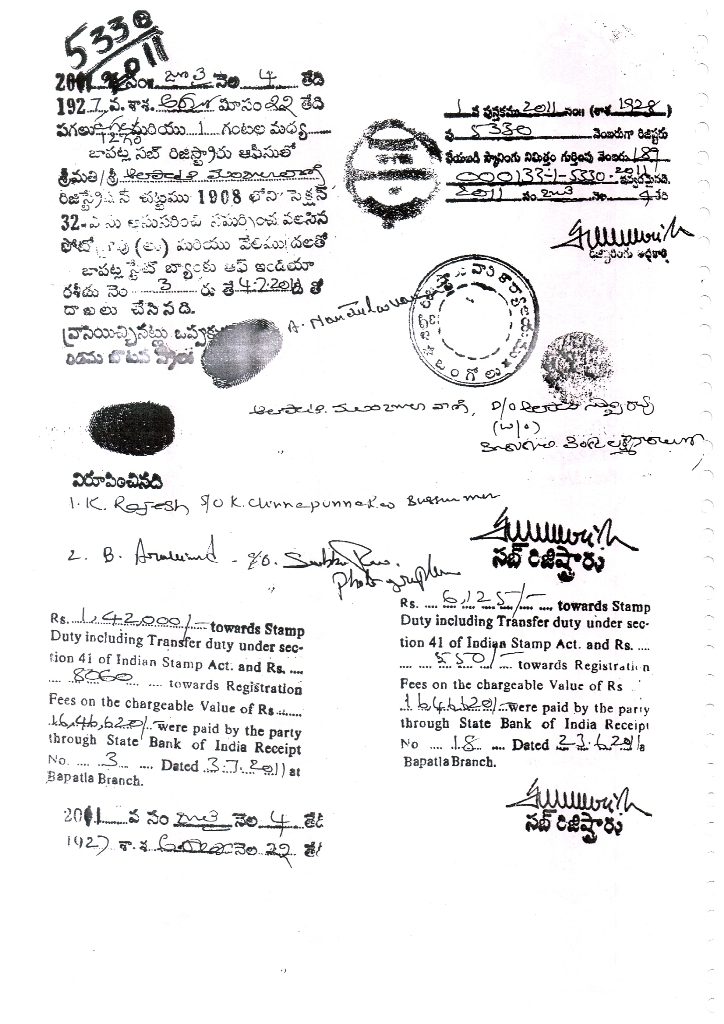 5330
2011
2011 వ సం॥ జూ 3 నెల 4 తేది
192 వ. శా.శ. మాసం 22 తేది
పగలు మరియు 1 గంటల మధ్య
బాపట్ల సబ్ రిజిస్ట్రారు ఆఫీసులో
శ్రీమతి/శ్రీ
రిజిస్ట్రేషన్ చట్టము 1908 లోని సెక్షన్
32-ఎ ను అనుసరించి సమర్పించ వలసిన
ఫోటో (లు) మరియు వేలిముద్రలతో
బాపట్ల స్టేట్ బ్యాంకు ఆఫ్ ఇండియా
రశీదు నెం 3 రు తే 4.7.2011 ది తో
దాఖలు చేసినది.
వ్రాసియిచ్చినట్లు ఒప్పుకు
1 వ పుస్తకము 2011 సం॥ (శా.శ. 1928)
పు 5330 నెంబరుగా రిజిష్టరు
చేయబడి స్కానింగు నిమిత్తం గుర్తింపు నెంబరు 189
000133-1-5330-2011 ఇవ్వడమైనది.
2011 సం. నెల 4 తేది
రిజిష్టరింగు అధికారి
కార్యాలయము
ఒంగోలు
A. Manjula
D/O
(W/O)
నిరూపించినది
1. K. Rajesh S/O K. Chinnapunnarao
2. B. Aravind - S/O. Subba Rao.
Photographer
సబ్ రిజిష్ట్రారు
Rs. 1,42,000/- towards Stamp
Duty including Transfer duty under sec-
tion 41 of Indian Stamp Act. and Rs. ....
8060 .... towards Registration
Fees on the chargeable Value of Rs ......
16,46,620/- were paid by the party
through State Bank of India Receipt
No. .... 3 .... Dated 3.7.2011 at
Bapatla Branch.
Rs. .... 6,125/- .... towards Stamp
Duty including Transfer duty under sec-
tion 41 of Indian Stamp Act. and Rs. ....
.... 550/- .... towards Registration
Fees on the chargeable Value of Rs
164620/- were paid by the party
through State Bank of India Receipt
No .... 18 .... Dated 23.6.2011 a
Bapatla Branch.
2011 వ సం నెల 4 తేది
1927 శా.శ నెల 22 తేది
సబ్ రిజిష్ట్రారు